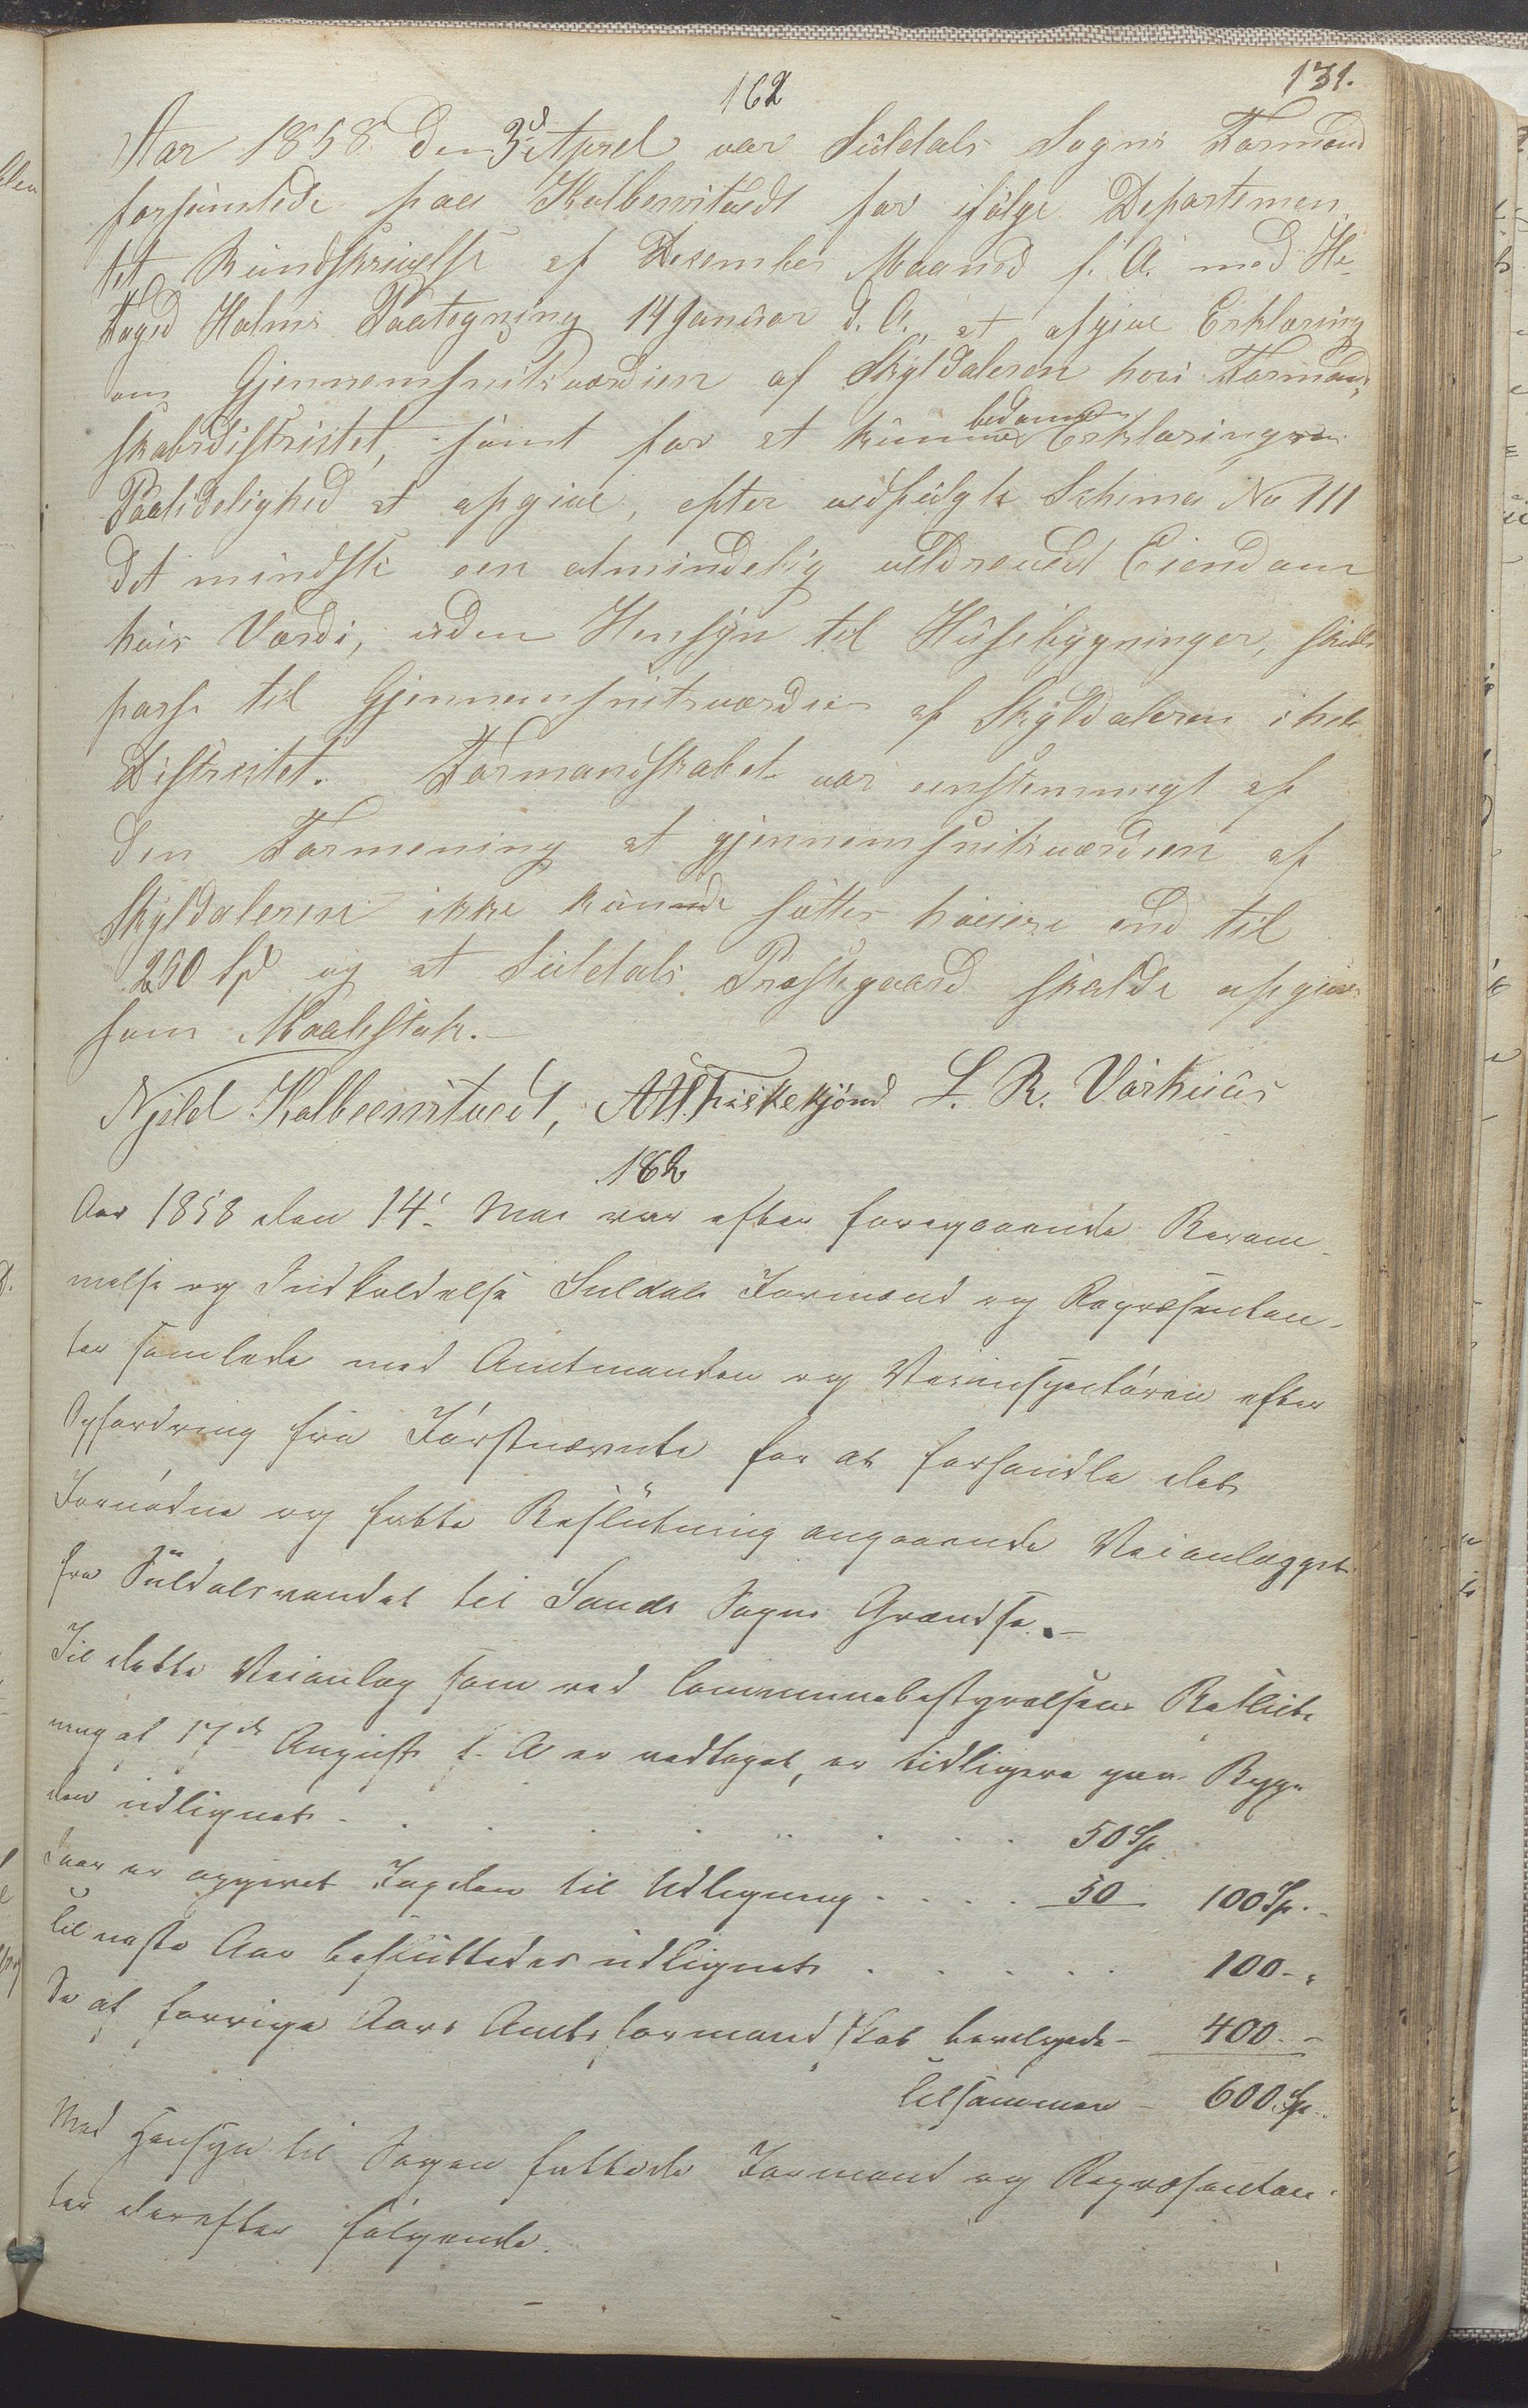 131.
162
Aar 1858 den 3d April var Suldals Sogns Formænd
forsamlede paa Kolbeenstvedt for ifølge Departemen
tet Rundskrivelse af Desember Maaned f. A. med He-
Foged Holms Paategning 14 Januar d. A. at afgive Erklæring
om Gjennemsnitsværdien af Skyldaleren hos Formand-
skabsdistriktet, samt for at kunne bedømme Erklæringens
Paalidelighed at opgive, efter vedfulgte Schema No III
det mindste een almindelig veldrevedt Eiendom
hvis Værdi, uden Hensyn til Husebygninger, skulde
passe til Gjennemsnitsværdien af Skyldaleren i hele
Distriktet. Formandskabet var eenstemmigt af
den Formening at gjennemsnitsværdien af
Skyldaleren ikke kunde sættes høiere end til
250 Spd og at Suldals Præstgaard skulde opgives
som Maalestok.-
Njeld Kolbeenstvedt, L. R. Vårhuus
162
Aar 1858 den 14. Mai var efter foregaaende Beram-
melse og Indkaldelse Suldals Formænd og Repræsentan-
ter samlede med Amtmanden og Veiinspectøren efter
Opfordring fra Førstnævnte for at forhandle det
Fornødne og fatte Beslutning angaaende Veianlægget
fra Suldalsvandet til Sands Sogns Grændse.-
Til dette Veianlæg som ved Communebestyrelsens Beslut-
ning af 17de August f. A er vedtaget, er tidligere paa Byg-
den udlignet . . . . . . . 50 Sp
Iaar er opgivet Fogden til Udligning . . . . 50 100 Sp.-
til næste Aar besluttedes udlignet . . . . . 100-"
De af forrige Aars Amtsformandskab bevilgede - 400. -
tilsammen - 600 Sp.
Med Hensyn til Sagen fattede Formænd og Repræsentan-
ter derefter følgende.